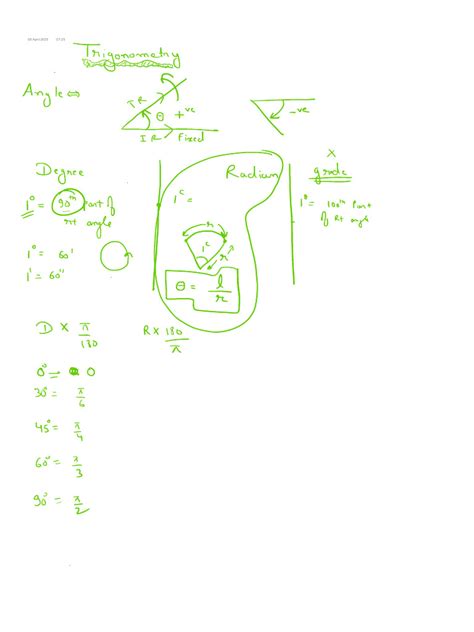 Trigonometry
Angle ⇔
T R
θ
+ve
I R
Fixed
-ve
Degree
1° = 90th Part of
rt angle
1° = 60'
1' = 60"
Radian
1ᶜ =
r
1ᶜ
r
θ = l/r
X
grade
1g = 100th Part
of Rt angle
D × π/180
R × 180/π
0° = 0
30° = π/6
45° = π/4
60° = π/3
90° = π/2